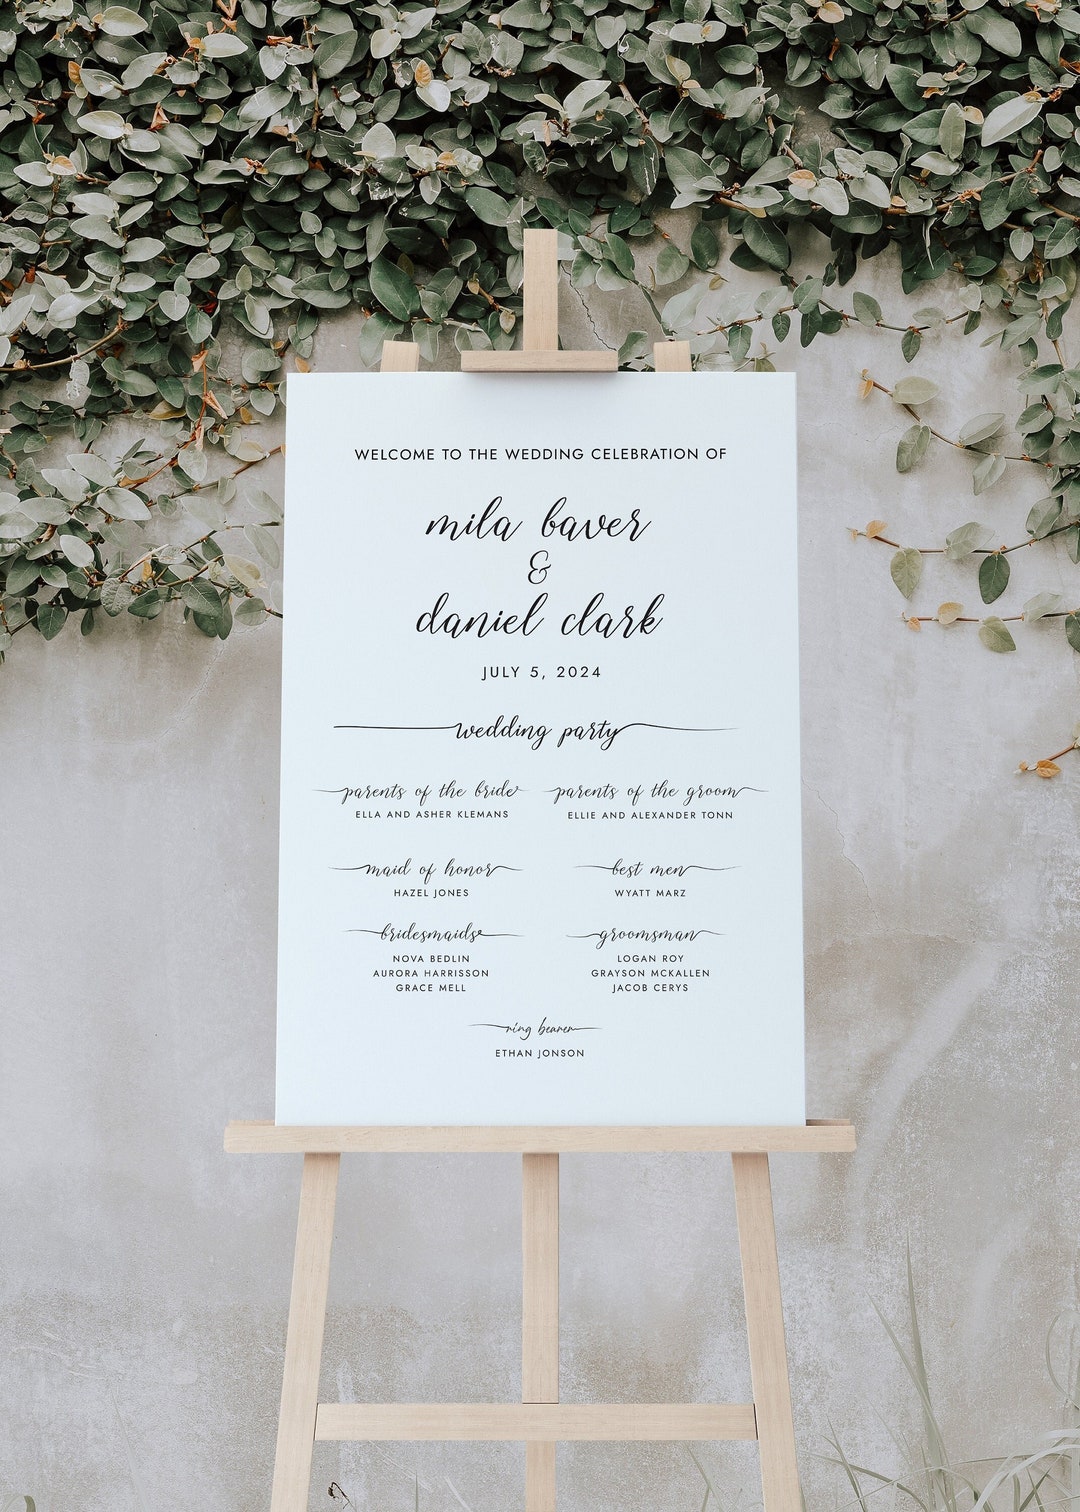 WELCOME TO THE WEDDING CELEBRATION OF
mila baver
&
daniel clark
JULY 5, 2024
wedding party
parents of the bride
ELLA AND ASHER KLEMANS
parents of the groom
ELLIE AND ALEXANDER TONN
maid of honor
HAZEL JONES
best men
WYATT MARZ
bridesmaids
NOVA BEDLIN
AURORA HARRISSON
GRACE MELL
groomsman
LOGAN ROY
GRAYSON MCKALLEN
JACOB CERYS
ring bearer
ETHAN JONSON